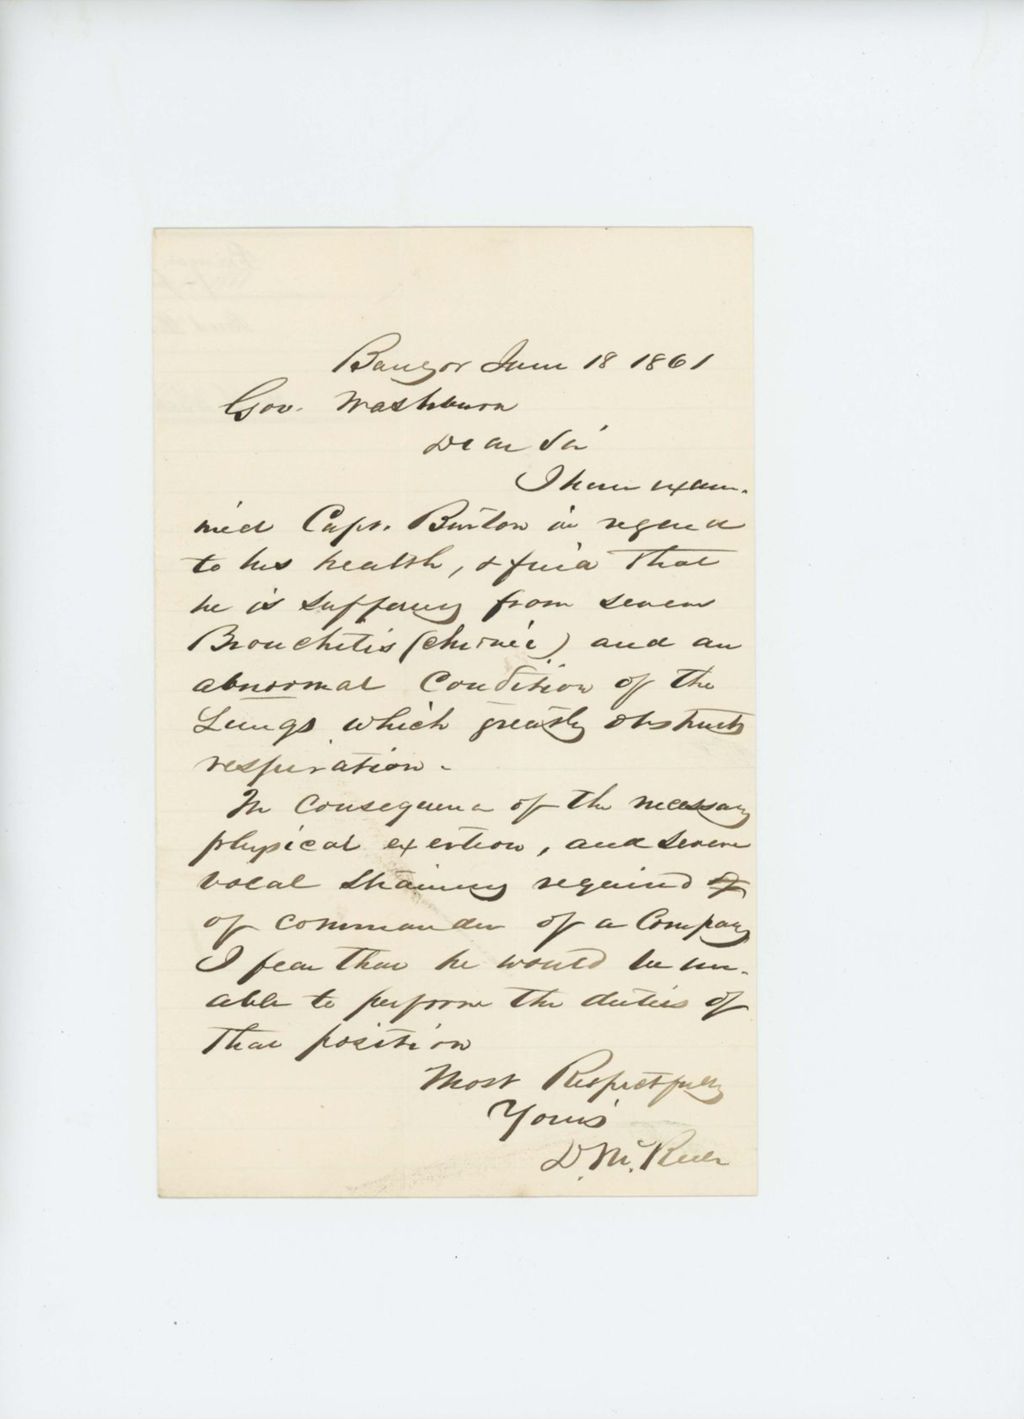 Bangor June 18 1861
Gov. Washburn
Dear Sir
I have exam-
ined Capt. Burton in regard
to his health, & find that
he is suffering from severe
Bronchitis (chronic) and an
abnormal Condition of the
Lungs which greatly obstructs
respiration -
In Consequence of the necessary
physical exertion, and severe
vocal straining required of
of commander of a Company
I fear that he would be un-
able to perform the duties of
that position
Most Respectfully
Yours
D. McRuer